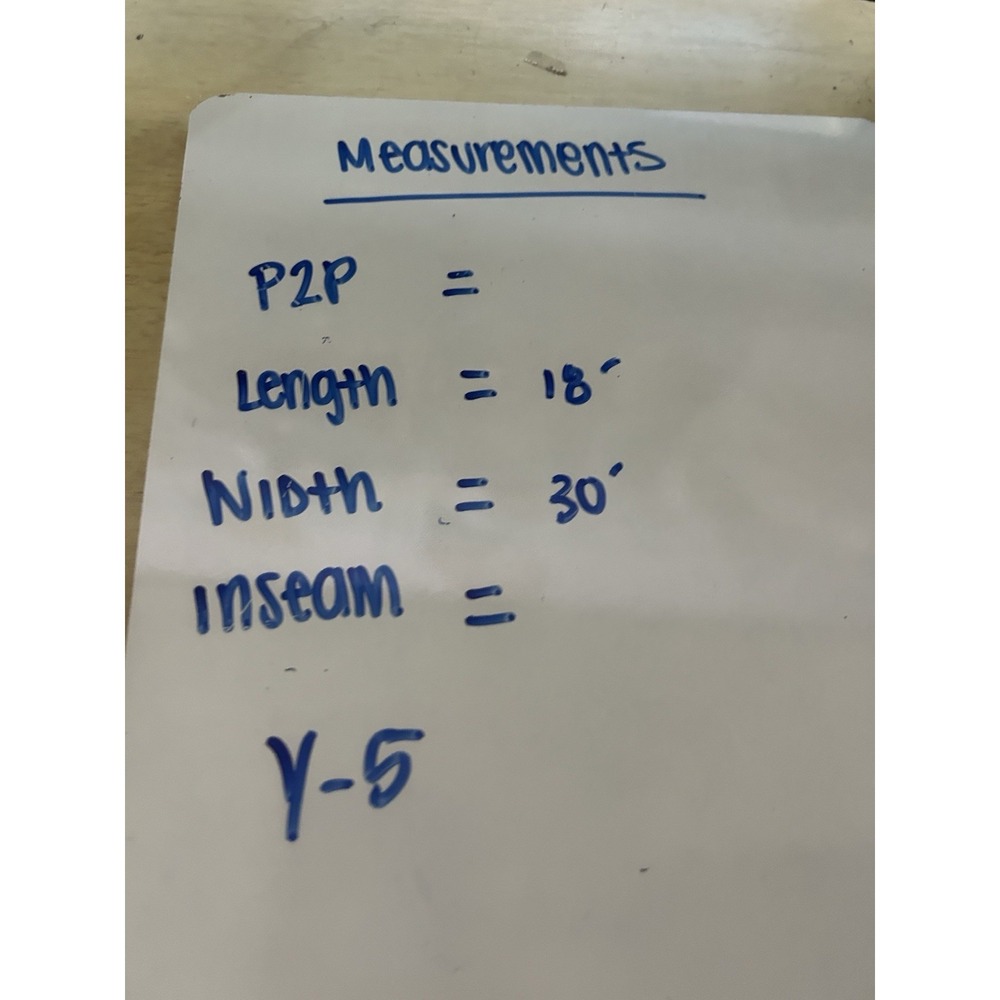 Measurements
P2P =
Length = 18'
WIDth = 30'
Inseam =
Y-5